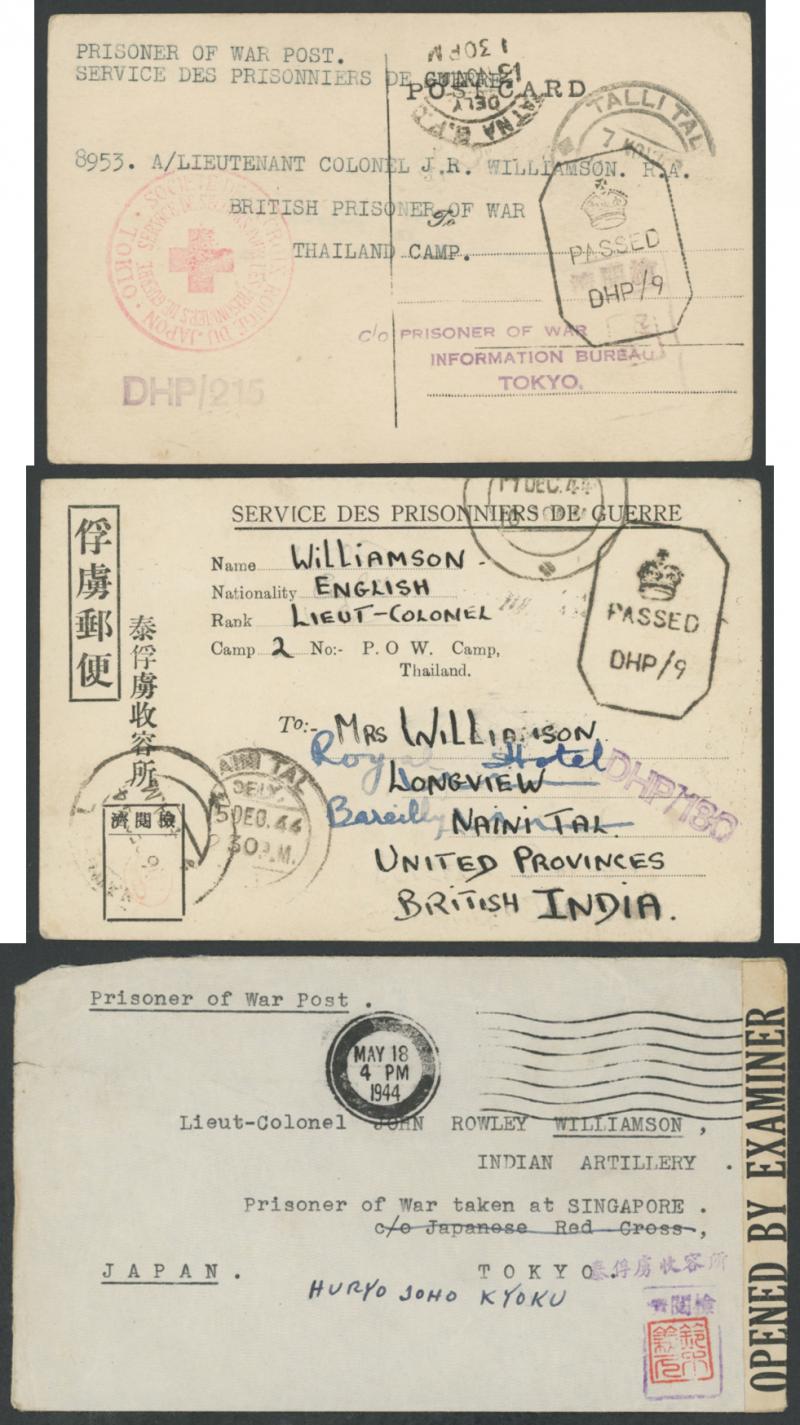 PRISONER OF WAR POST.
SERVICE DES PRISONNIERS DE GUERRE.
POST CARD
13 NOV
1 30 PM
DELY
TALLI TAL
8953. A/LIEUTENANT COLONEL J.R. WILLIAMSON. R.A.
BRITISH PRISONER OF WAR
To
THAILAND CAMP.
CROIX ROUGE DU JAPON · TOKIO
PASSED
DHP/9
c/o PRISONER OF WAR
INFORMATION BUREAU
TOKYO.
DHP/215
俘虜郵便
泰俘虜收容所
17 DEC. 44
SERVICE DES PRISONNIERS DE GUERRE
Name WILLIAMSON
Nationality ENGLISH
Rank LIEUT-COLONEL
Camp 2 No:- P. O W. Camp,
Thailand.
PASSED
DHP/9
To:- MRS WILLIAMSON
Royal Hotel
LONGVIEW
Bareilly
NAINI TAL
UNITED PROVINCES
BRITISH INDIA.
DHP/180
NAINI TAL
DELY.
5 DEC. 44
30 P.M.
濟閱檢
Prisoner of War Post .
MAY 18
4 PM
1944
Lieut-Colonel JOHN ROWLEY WILLIAMSON ,
INDIAN ARTILLERY .
Prisoner of War taken at SINGAPORE .
c/o Japanese Red Cross ,
JAPAN . TOKYO .
HURYO JOHO KYOKU
泰俘虜收容所
閱檢
OPENED BY EXAMINER